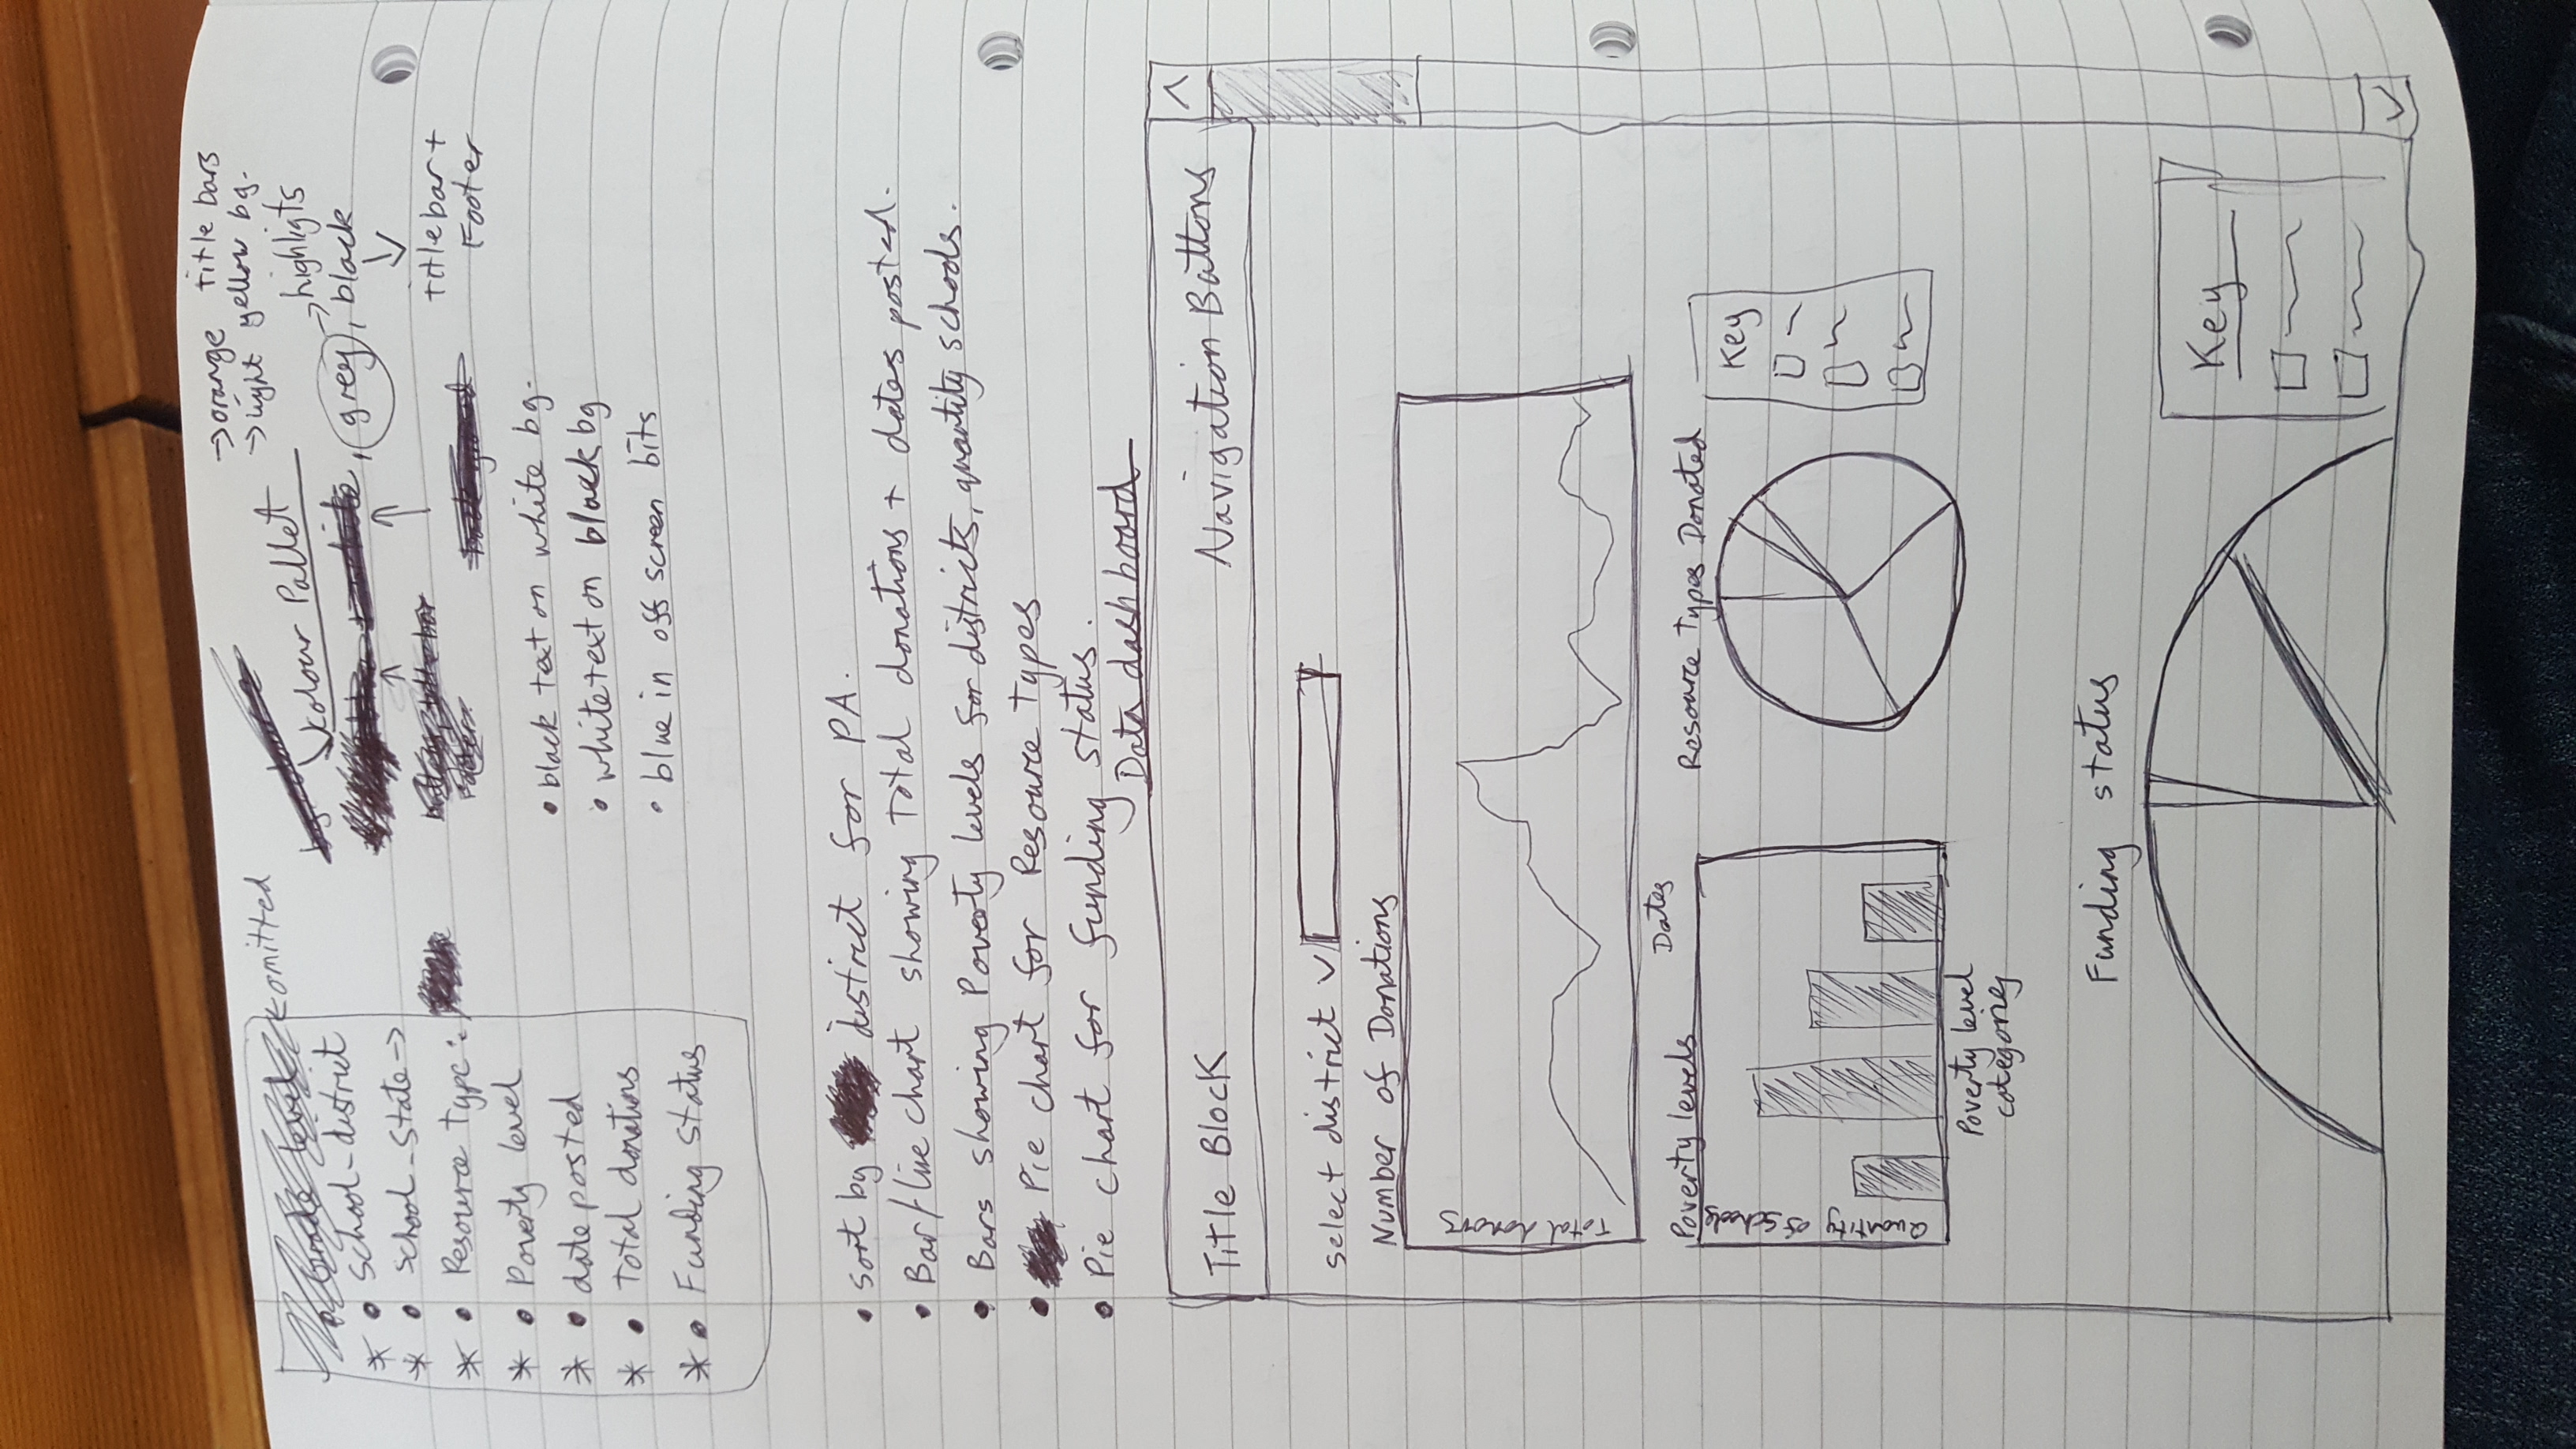 Grade level ← omitted
* • School-district
* • School-State →
* • Resource type:
* • Poverty level
* • date posted
* • Total donations
* • Funding status
→ orange title bars
→ light yellow bg.
Colour Pallet
white, grey, black
→ highligts
title bar +
Footer
• black text on white bg.
• white text on black bg
• blue in off screen bits
• Sort by district for PA.
• Bar/line chart showing Total donations + dates posted.
• Bars showing Poverty levels for districts, quantity schools.
• Pie chart for Resource types
• Pie chart for funding status.
Data dashboard
Title Block
Navigation Buttons
select district
Number of Donations
Total donors
Dates
Poverty levels
Quantity of Schools
Poverty level
categories
Resource types Donated
Key
Funding status
Key